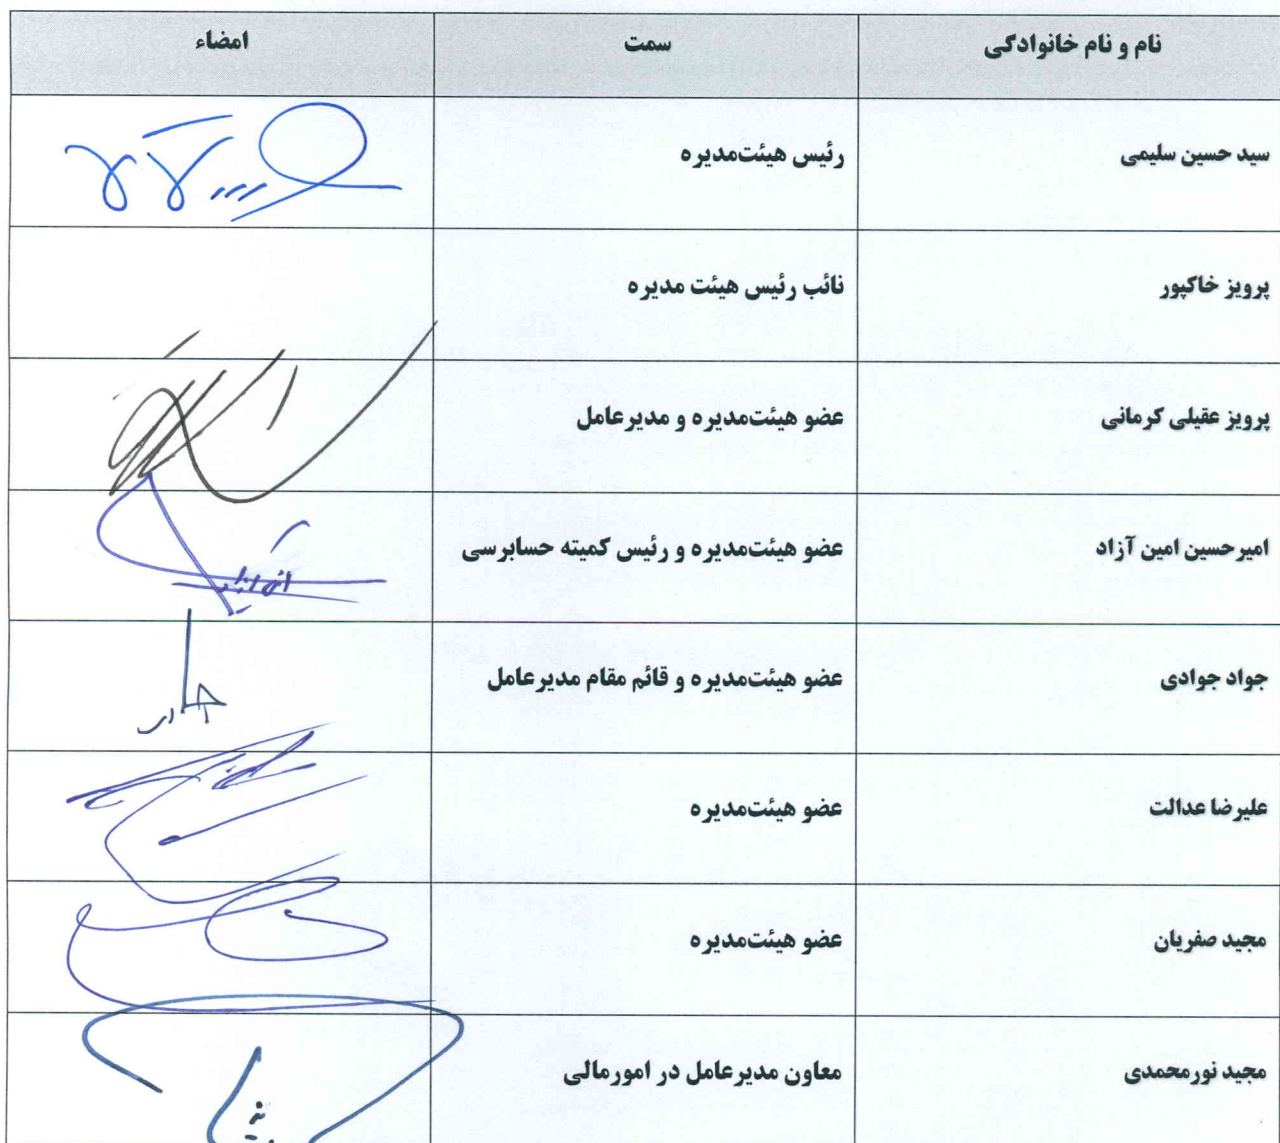 نام و نام خانوادگی سمت امضاء
سید حسین سلیمی رئیس هیئت‌مدیره
پرویز خاکپور نائب رئیس هیئت مدیره
پرویز عقیلی کرمانی عضو هیئت‌مدیره و مدیرعامل
امیرحسین امین آزاد عضو هیئت‌مدیره و رئیس کمیته حسابرسی
جواد جوادی عضو هیئت‌مدیره و قائم مقام مدیرعامل
علیرضا عدالت عضو هیئت‌مدیره
مجید صفریان عضو هیئت‌مدیره
مجید نورمحمدی معاون مدیرعامل در امورمالی